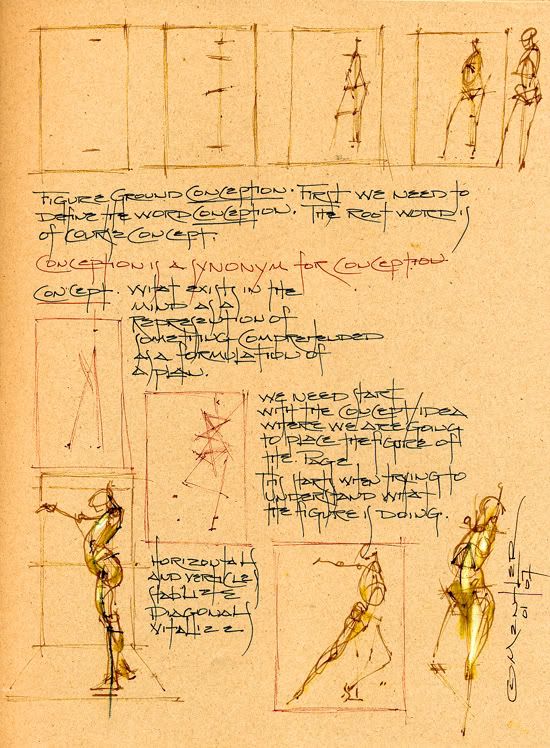 FIGURE GROUND CONCEPTION. FIRST WE NEED TO
DEFINE THE WORD CONCEPTION. THE ROOT WORD IS
OF COURSE CONCEPT.
CONCEPTION IS A SYNONYM FOR CONCEPTION
CONCEPT. WHAT EXISTS IN THE
MIND AS A
REPRESENTION OF
SOMETHING COMPREHENDED
AS A FORMULATION OF
A PLAN.
WE NEED START
WITH THE CONCEPT/IDEA
WHERE WE ARE GOING
TO PLACE THE FIGURE OF
THE PAGE
THIS STARTS WHEN TRYING TO
UNDERSTAND WHAT
THE FIGURE IS DOING.
HORIZONTALS
AND VERTICLES
STABILIZE
DIAGONALS
VITALIZE
01 07